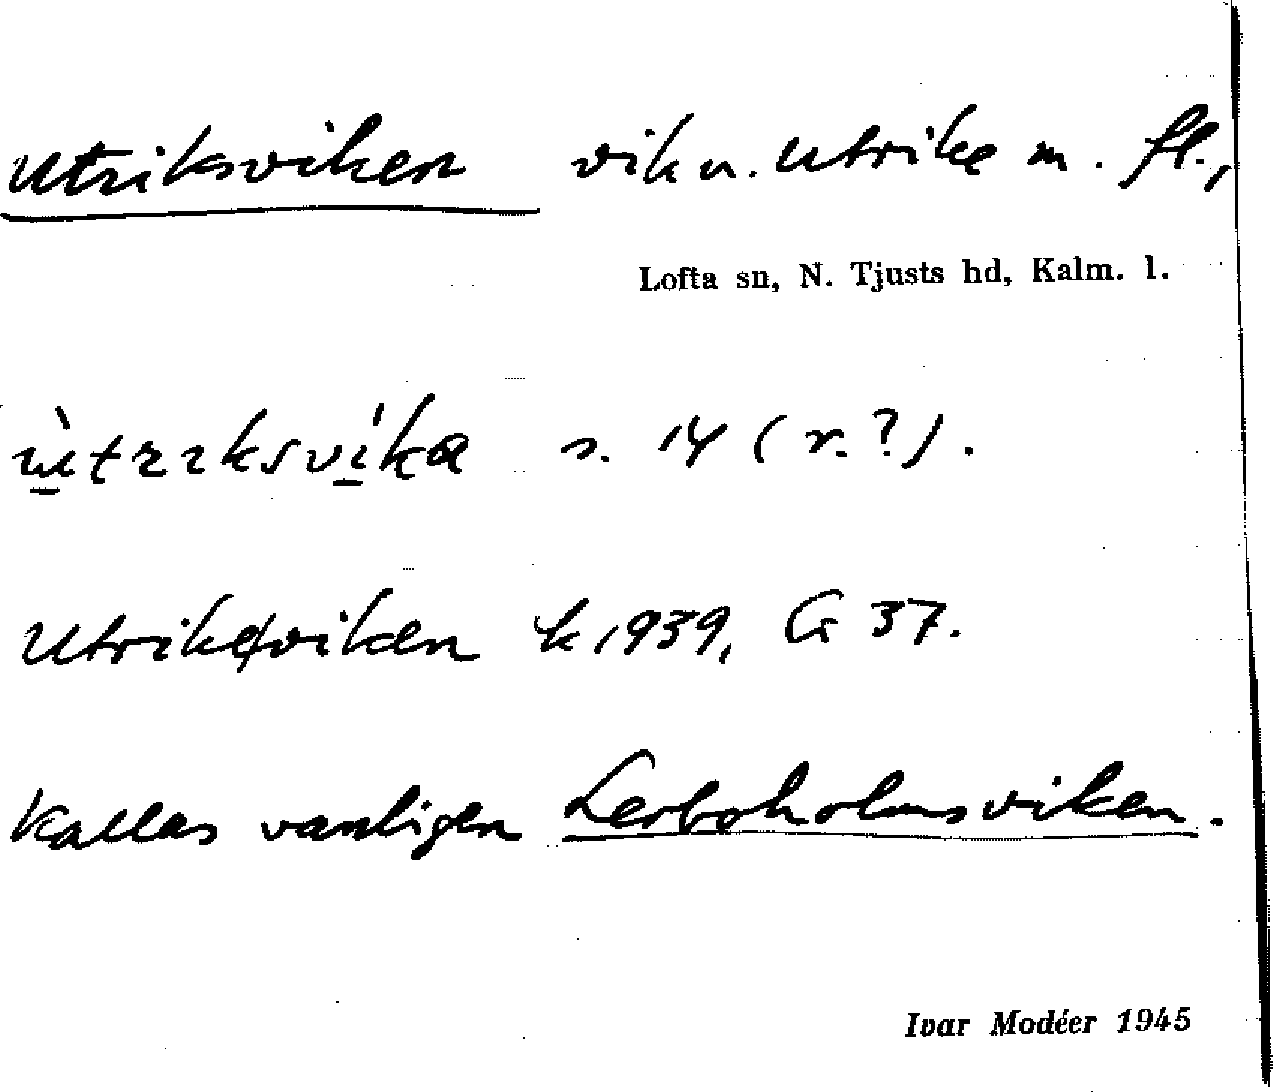 Utriksviken vik u. Utrike m. fl.,
Lofta sn, N. Tjusts hd, Kalm. l.
s. 14 (r.?).
Utrikesviken k 1939, G 37.
Kallas vanligen Lerboholmsviken.
Ivar Modéer 1945